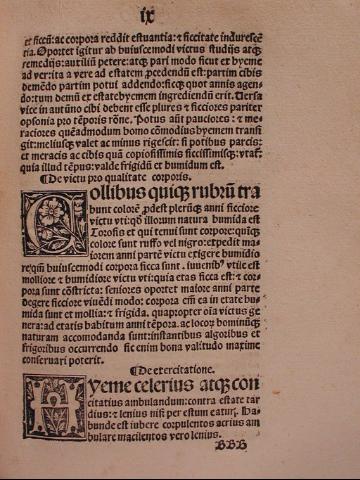 ix
et siccũ: ac corpora reddit estuantia: ⁊ siccitate indurescē
tia. Oportet igitur ab huiuscemodi victus studijs atqꝫ
remedijs: auxiliũ petere: atqꝫ pari modo sicut ex hyeme
ad ver: ita a vere ad estatem ꝓcedendũ est: partim cibis
demēdo partim potui addendo: sicqꝫ quot annis agen
do: tum demũ ex estate hyemem ingrediendũ erit. Versa
vice in autũno cibi debent esse plures ⁊ sicciores pariter
opsonia pro tēporis rōne. Potus aũt pauciores: ⁊ me
raciores quēadmodum homo cōmodius hyemem transi
git: meliusqꝫ valet ac minus rigescit: si potibus parcis:
et meracis ac cibis quā copiosissimis siccissimisqꝫ: vtat̃:
quia illud tēpus: valde frigidũ et humidum est.
¶De victu pro qualitate corporis.
Collibus quiqꝫ rubrũ tra
hunt colorē ꝓdest plerũqꝫ anni sicciore
victu vti: qđ illorum natura humida est
Torosis et qui tenui sunt corpore: quiqꝫ
colore sunt ruffo vel nigro: expedit ma
iorem anni partē victu exigere humidio
re: qm̃ huiuscemodi corpora sicca sunt. iuuenibꝰ vtile est
molliore ⁊ humidiore victu vti: quia etas sicca est: ⁊ cor
pora sunt cōstricta: seniores oportet maiore anni parte
degere sicciore viuēdi modo: corpora em̃ ea in etate hu
mida sunt et mollia: ⁊ frigida. quapropter oīa victus ge
nera: ad etatis habitum anni tēpora. ac locoꝝ hominũqꝫ
naturam accomodanda sunt: instantibus algoribus et
frigoribus occurrendo sic enim bona valitudo maxime
conseruari poterit.
¶De exercitatione.
Hyeme celerius atqꝫ con
citatius ambulandum: contra estate tar
dius: ⁊ lenius nisi per estum eatur. Ha
bunde est iubere corpulentos acrius am
bulare macilentos vero lenius.
BBB